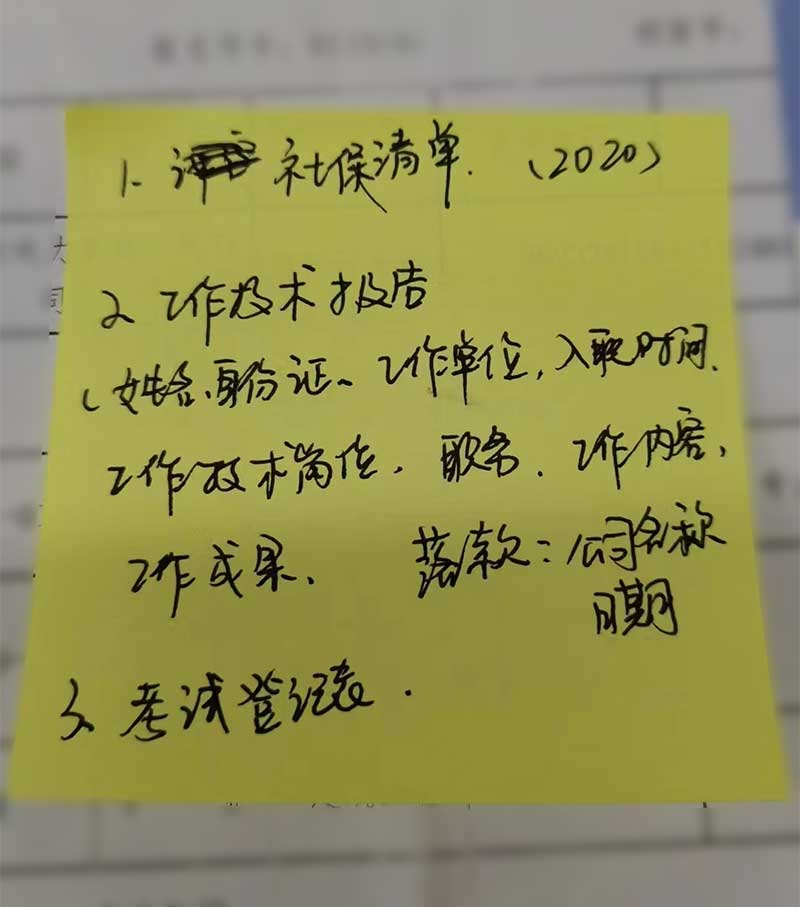 1. 社保清单. (2020)
2. 工作技术报告
(姓名、身份证、工作单位, 入职时间.
工作技术岗位, 职务. 工作内容,
工作成果、 落款: 公司名称
日期
3. 考试登记表.